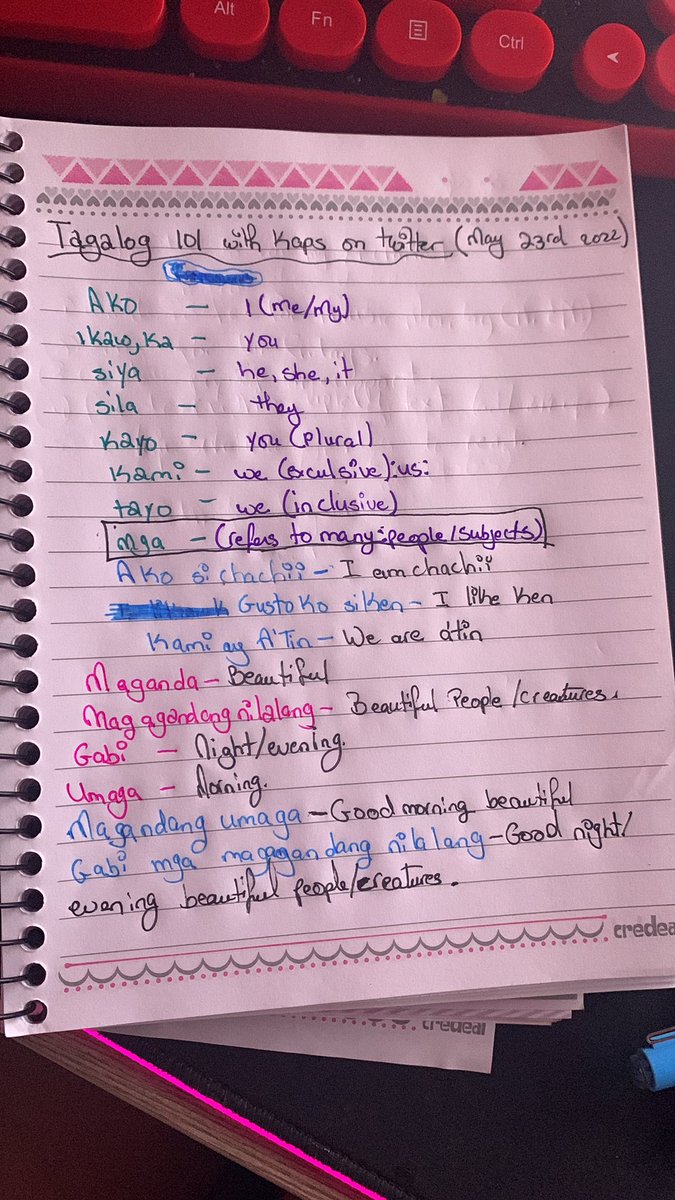 Alt
Fn
Ctrl
Tagalog 101 with Kaps on twitter (May 23rd 2022)
AKO - I (me/my)
Ikaw, Ka - you
siya - he, she, it
sila - they
Kayo - you (plural)
Kami - we (exculsive):us:
tayo - we (inclusive)
mga - (refers to many:people/subjects)
Ako si chachii - I am chachii
Gusto ko si Ken - I like Ken
Kami ay A'Tin - We are a'tin
Maganda - Beautiful
Magagandang nilalang - Beautiful People/creatures.
Gabi - Night/evening.
Umaga - Morning.
Magandang umaga - Good morning beautiful
Gabi mga magagandang nilalang - Good night/
evening beautiful people/creatures.
credea
credeal